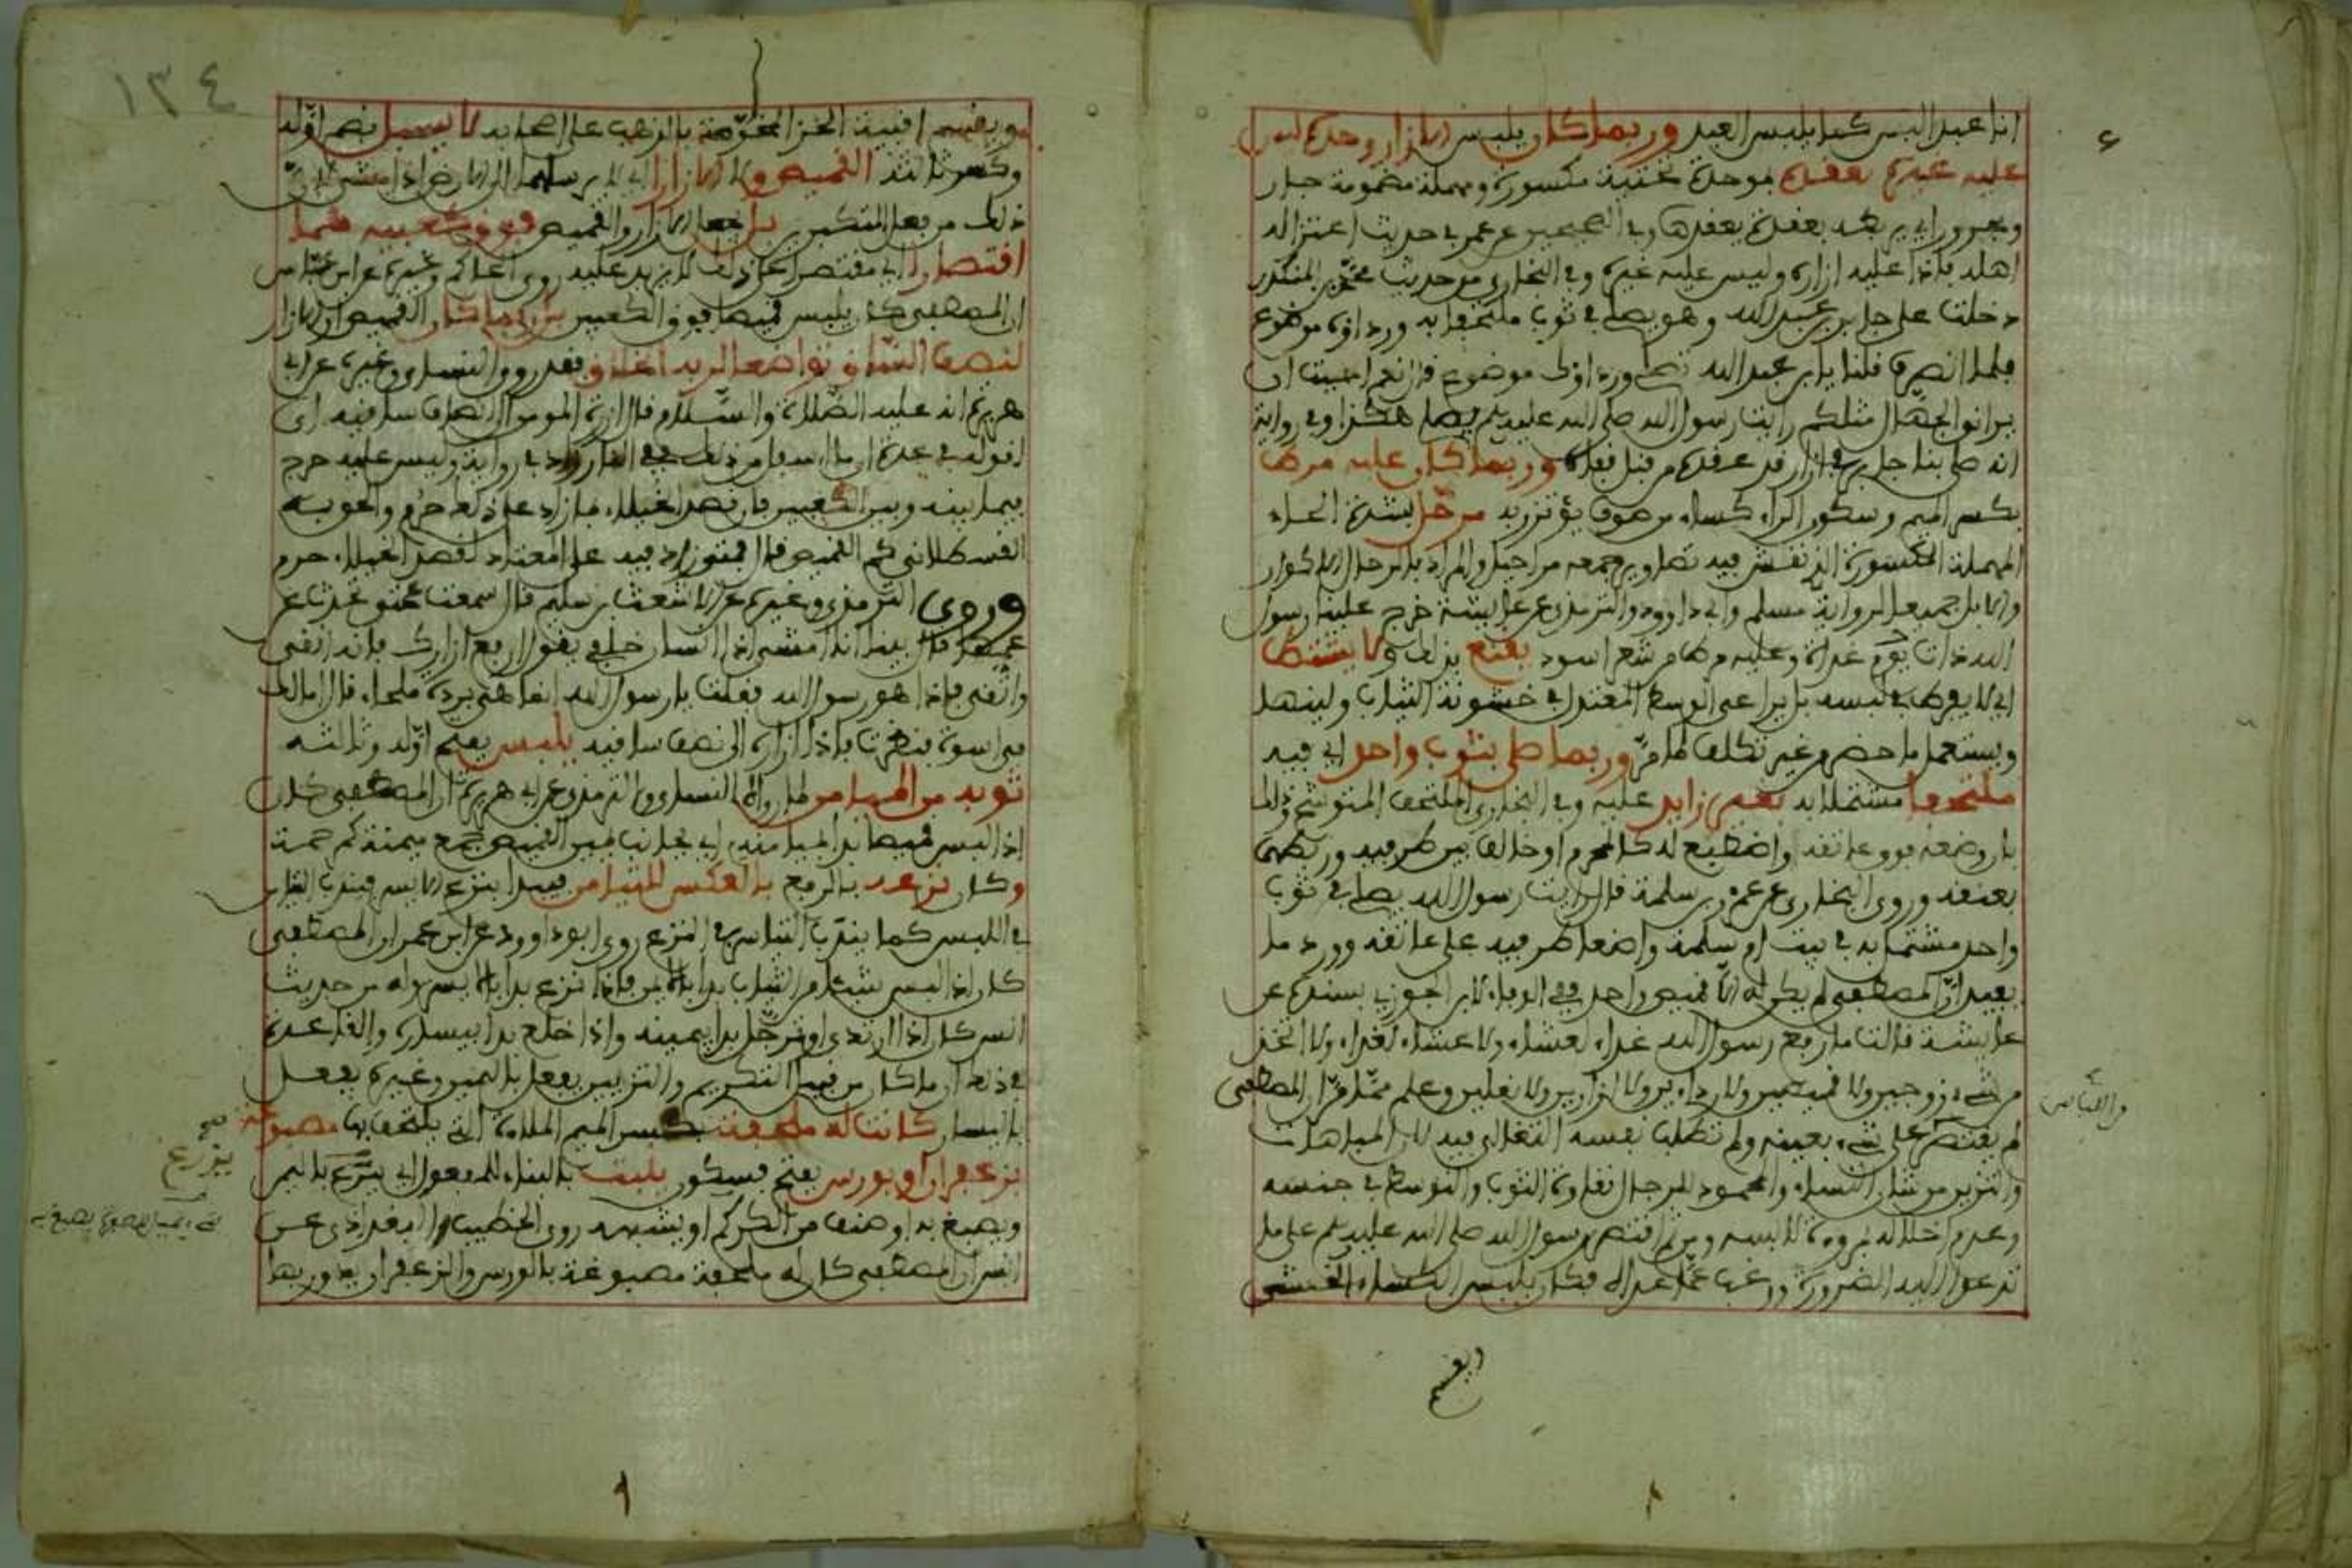 انا عبد البس كما يلبس العبد وربما كان يلبس الازار وحده ليس
عليه غيره يعقده بموحدة تحتية مكسورة ومهملة مضمومة جار
ومجرور اي يرتد يعقده يعقدها وفي الصحيحين عن عمر في حديث اعتزاله
اهله فاذا عليه ازاره وليس عليه غيره وفي البخاري من حديث محمد بن المنكدر
دخلت على جابر بن عبد الله وهو يصلي في ثوب ملتحفا به ورداؤه موضوع
فلما انصرف قلنا يابا عبد الله تصلي ورداؤك موضوع قال نعم احببت ان
يراني الجهال مثلكم رايت رسول الله صلى الله عليه وسلم يصلي هكذا وفي رواية
انه صلى بنا جابر في ازار قد عقده من قبل قفاه وربما كان عليه مرط
بكسر الميم وسكون الراء كساء من صوف يؤتزر به مرحل بشدة الحاء
المهملة المكسورة الذي نقش فيه تصاوير جمعه مراحل والمراد بالرحال الاكوار
والابل جمعا لرواية مسلم وابي داوود والترمذي عن عايشة خرج علينا رسول
الله ذات يوم غداة وعليه مرط من شعر اسود يقنع بذلك ولا يشتط
اي لا يفرط في لبسه بل يراعي الوسط المعتدل في خشونة الثياب ولينها
ويستعمل ما حضر من غير تكلف لما مر وربما صلى بثوب واحد اي فيه
ملتحفا مشتملا به بغير زايد عليه وفي البخاري الملتحف المتوشح وذلك
بان وضعه فوق عاتقه واضطبع له كالمحرم او خالف بين طرفيه وربطهما
بعنقه وروى البخاري عن عمر بن سلمة قال رايت رسول الله يصلي في ثوب
واحد مشتملا به في بيت ام سلمة واضعا طرفيه على عاتقه وورد ما
يفيد ان المصطفى لم يكن له الا قميص واحد ففي الوفاء لابن الجوزي بسنده عن
عايشة قالت ما رفع رسول الله غداء لعشاء ولا عشاء لغداء ولا اتخذ
من شيء زوجين ولا قميصين ولا رداءين ولا ازارين ولا نعلين وعلم مما مر ان المصطفى
لم يقتصر على شيء بعينه ولم تطلب نفسه التغالي فيه لان المباهات
والتزين من شان النساء والمحمود للرجال نقاوة الثوب والتوسط في جنسه
وعدم اخلاله بمروءة لابسه ومن ثم اقتصر رسول الله صلى الله عليه وسلم على ما
تدعوا اليه الضرورة ورغب عما عداه فكان يلبس الكساء الخشن
ويقسم
واللباس
١٣٤
ويقسم اقبية الخز المخوصة بالذهب على اصحابه لا يسبل بضم اوله
وكسر ثالثه القميص ولا الازارا اي لا يرسلهما الى الارض اذا مشى لان
ذلك من فعل المتكبرين بل جعل الازار والقميص فوق كعبيه هما
اقتصارا اي مقتصرا على ذلك لا يزيد عليه روى الحاكم وغيره عن ابن عباس
ان المصطفى كان يلبس قميصا فوق الكعبين بل ربما كان القميص او الازار
لنصف الساق تواضعا لربه الخلاق فقد روى النسائي وغيره عن ابي
هريرة انه عليه الصلاة والسلام قال ازرة المومن الى انصاف ساقيه اي
وليس عليه حرج
فيما بينه وبين الكعبين فان قصد الخيلاء بما زاد على ذلك حرم والحق به
القسطلاني كم القميص قال فمتى زاد فيه على المعتاد لقصد الخيلاء حرم
وروى الترمذي وغيره عن الاشعث بن سليم قال سمعت عمتي تحدث عن
عمها قال بينا انا امشي اذا انسان خلفي يقول ارفع ازارك فانه اتقى
وانقى فاذا هو رسول الله فقلت يا رسول الله انما هي بردة ملحاء قال اما لك
في اسوة فنظرت فاذا ازاره الى نصف ساقيه يلبس بفتح اوله وثالثه
ثوبه من الميامن لما رواه النسائي والترمذي عن ابي هريرة ان المصطفى كان
اذا لبس قميصا بدا بميامنه اي بجانب يمين القميص جمع ميمنة كمرحمة
وكان نزعه بالرفع بالعكس للميامن فيبدا بنزع الايسر فيندب التيامن
في اللبس كما يندب التياسر في النزع روى ابو داوود عن ابن عمر ان المصطفى
كان اذا لبس شيئا من الثياب بدا بالايمن فاذا نزع بدا بالايسر وله من حديث
انس كان اذا ارتدى او ترجل بدا بيمينه واذا خلع بدا بيساره والقاعدة
في ذلك ان ما كان من قبيل التكريم والتزيين يفعل باليمين وغيره يفعل
باليسار كانت له ملحفة بكسر الميم الملاءة التي يلتحف بها مصبوغة
بزعفران او بورس بفتح فسكون بالبناء للمفعول
ويصبغ به او صنف من الكركم او يشبهه روى الخطيب البغدادي عن
انس ان المصطفى كان له ملحفة مصبوغة بالورس والزعفران يدور بها
صح
يزرع